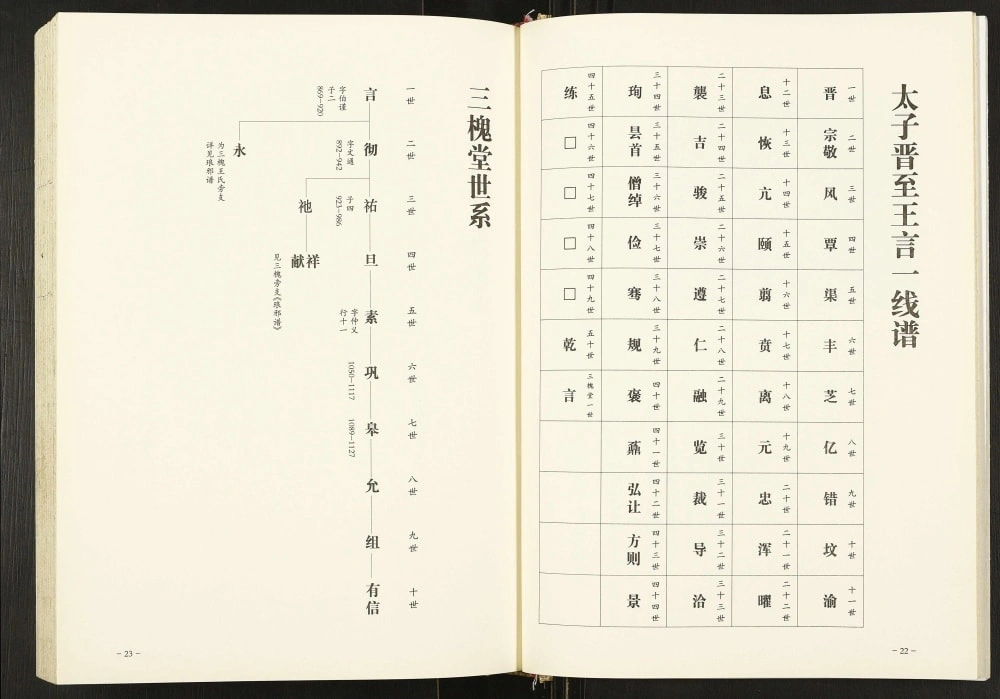 太子晋至王言一线谱
一世 晋
二世 宗敬
三世 风
四世 覃
五世 渠
六世 丰
七世 芝
八世 亿
九世 错
十世 坟
十一世 渝
十二世 息
十三世 恢
十四世 亢
十五世 颐
十六世 翦
十七世 贲
十八世 离
十九世 元
二十世 忠
二十一世 浑
二十二世 曜
二十三世 襲
二十四世 吉
二十五世 骏
二十六世 崇
二十七世 遵
二十八世 仁
二十九世 融
三十世 览
三十一世 裁
三十二世 导
三十三世 洽
三十四世 珣
三十五世 昙首
三十六世 僧绰
三十七世 俭
三十八世 骞
三十九世 规
四十世 褒
四十一世 鼒
四十二世 弘让
四十三世 方则
四十四世 景
四十五世 练
四十六世 □
四十七世 □
四十八世 □
四十九世 □
五十世 乾
三槐堂一世 言
－22－
三槐堂世系
一世
二世
三世
四世
五世
六世
七世
八世
九世
十世
言
字伯谨
子二
869－920
彻
字文通
892－942
祐
子四
923－986
旦
素
字仲义
行十一
巩
1050－1117
皋
1089－1127
允
组
有信
祂
献祥
见三槐旁支《琅邪谱》
永
为三槐王氏旁支
详见琅邪谱
－23－